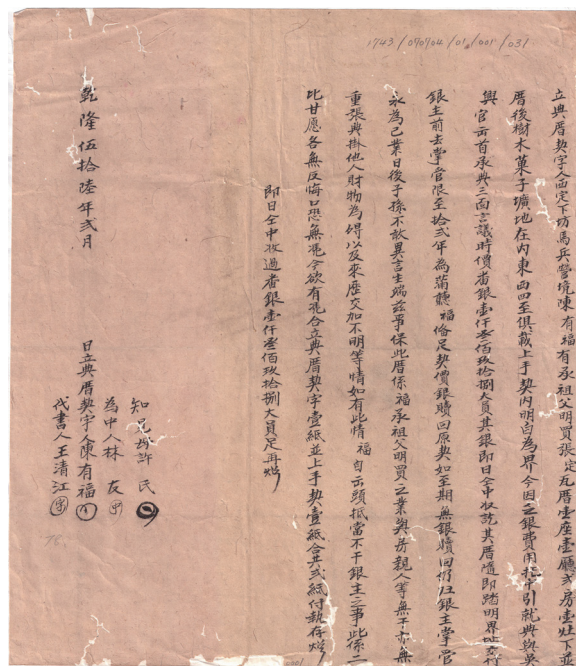 1743/070704/01/001/031
立典厝契字人西定下坊馬兵營境陳有福有承祖父明買張定瓦厝壹座壹廳弍房壹灶下並
厝後樹木菓子壙地在內東西四至俱載上手契內明白為界今因乏銀費用托中引就典與吳
興官首承典三面言議時價番銀壹仟叁佰玖拾捌大員其銀即日仝中收訖其厝隨即踏明界址交付
銀主前去掌官限至拾弍年為滿聽福備足契價銀贖回原契如至期無銀贖回仍歸銀主掌官
永為己業日後子孫不敢異言生端滋事保此厝係福承祖父明買之業與房親人等無干亦無
重張典掛他人財物為碍以及來歷交加不明等情如有此情福自出頭抵當不干銀主之事此係二
比甘愿各無反悔口恐無凭今欲有凭合立典厝契字壹紙並上手契壹紙合共弍紙付執存炤
即日仝中收過番銀壹仟叁佰玖拾捌大員足再炤
知見 許民
為中人林友
日立典厝契字人陳有福
代書人王清江
乾隆伍拾陸年弍月
78.